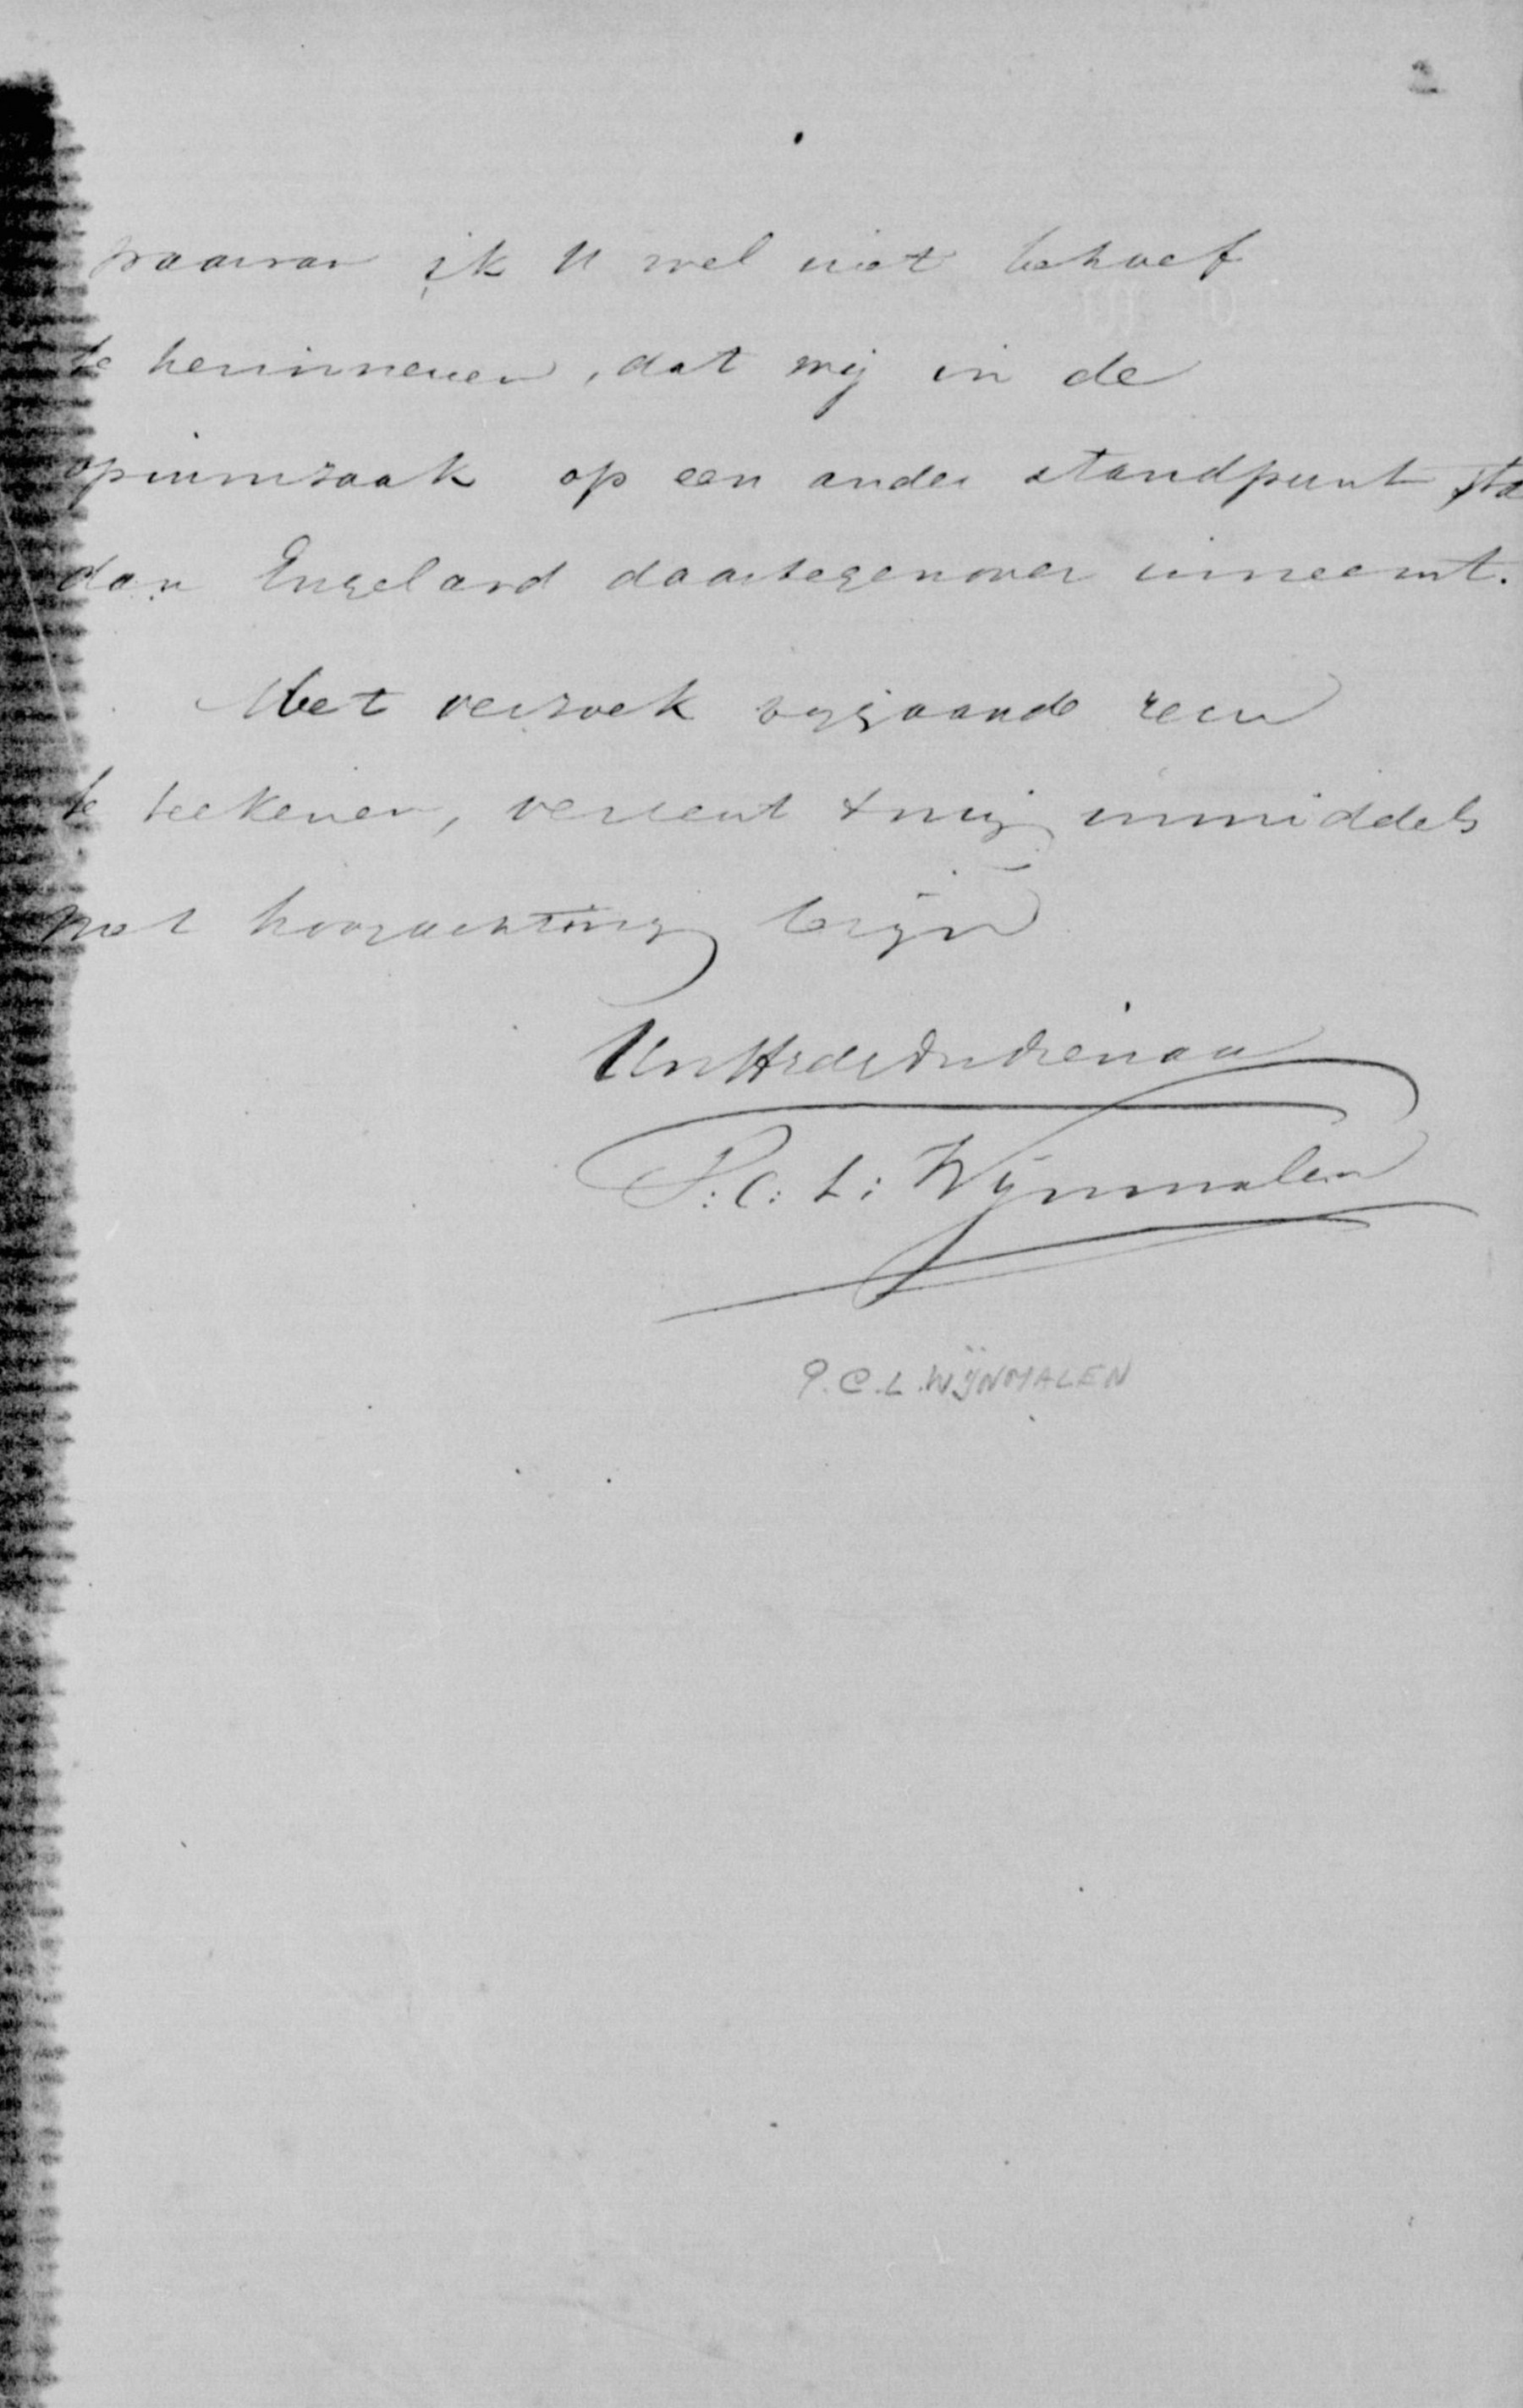 waarvan ik U wel niet behoef
te herinneren, dat wij in de
opiumzaak op een ander standpunt sta
dan Engeland daartegenover inneemt.
Met verzoek bijgaande recu
te teekenen, verzend & mij inmiddels
met hoogachting te zijn
Uw HEdDwDienaar
P: C: L: Wijnmalen
P.C.L. WIJNMALEN